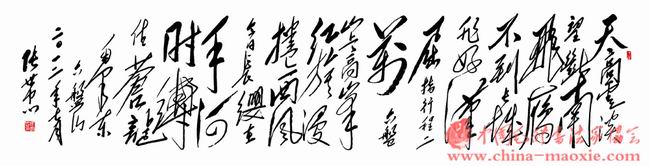 天高雲淡
望断南
飛雁
不到长城
非好漢
屈指行程二
萬
六盤
山上高峰
红旗漫
捲西风
今日长缨在
手何
时缚
住蒼龍
毛泽东
六盤山
二〇一二年
张
www.china-maoxie.com